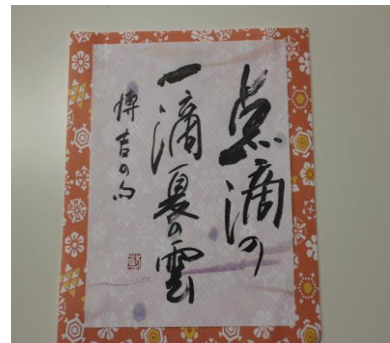 点滴の
一滴夏の雲
博吉の句